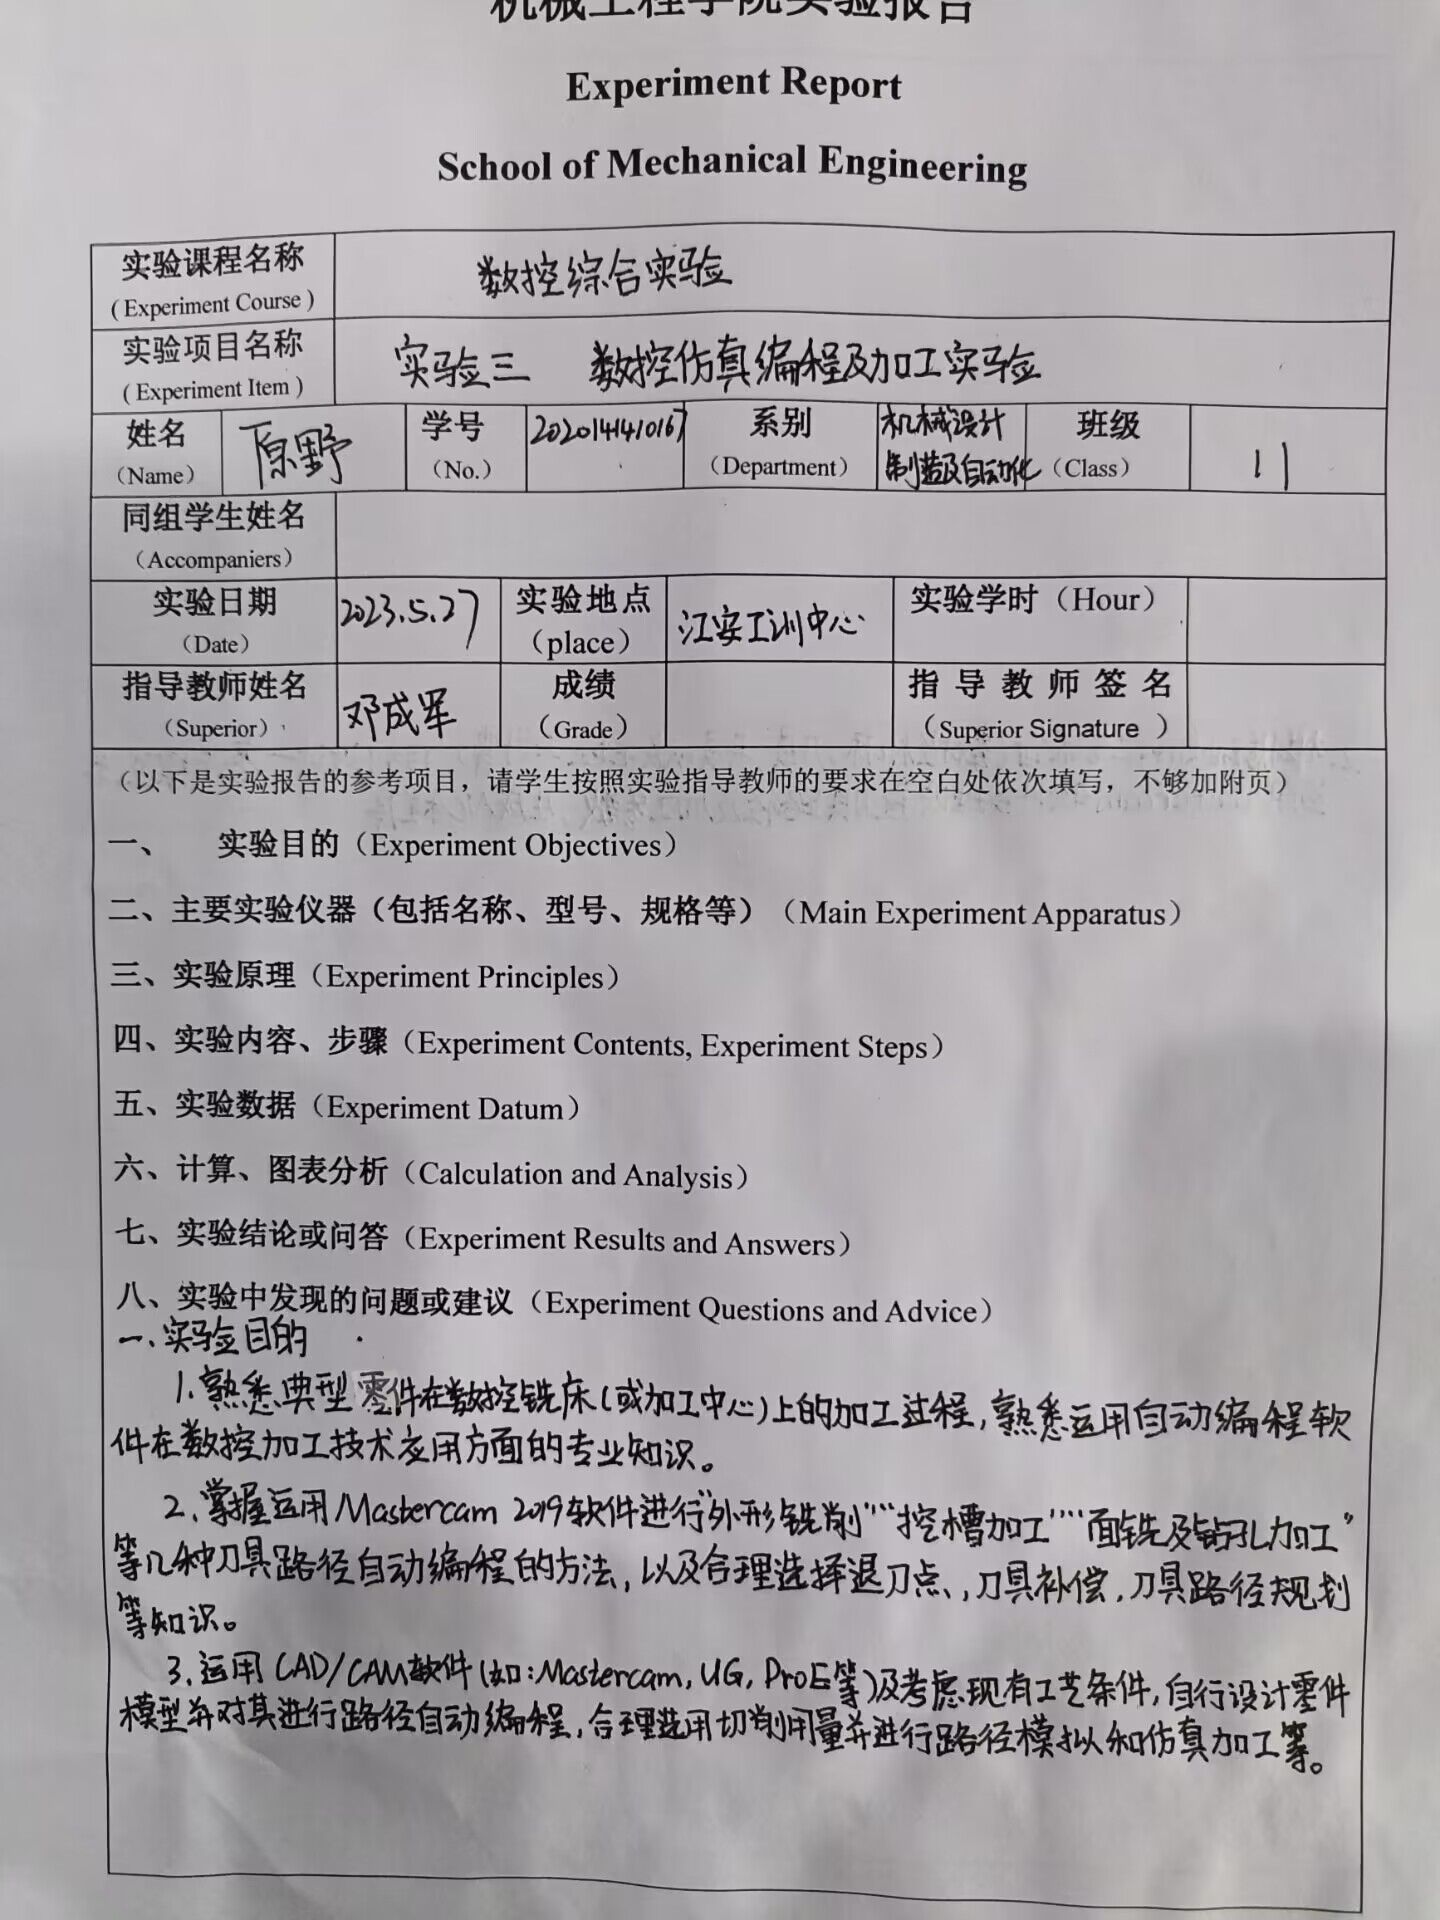 机械工程学院实验报告
Experiment Report
School of Mechanical Engineering
实验课程名称
(Experiment Course)
数控综合实验
实验项目名称
(Experiment Item)
实验三 数控仿真编程及加工实验
姓名
(Name)
原野
学号
(No.)
2020141410167
系别
(Department)
机械设计
制造及自动化
班级
(Class)
11
同组学生姓名
(Accompaniers)
实验日期
(Date)
2023.5.27
实验地点
(place)
江安工训中心
实验学时(Hour)
指导教师姓名
(Superior)
邓成军
成绩
(Grade)
指导教师签名
(Superior Signature )
(以下是实验报告的参考项目,请学生按照实验指导教师的要求在空白处依次填写,不够加附页)
一、 实验目的(Experiment Objectives)
二、主要实验仪器(包括名称、型号、规格等)(Main Experiment Apparatus)
三、实验原理(Experiment Principles)
四、实验内容、步骤(Experiment Contents, Experiment Steps)
五、实验数据(Experiment Datum)
六、计算、图表分析(Calculation and Analysis)
七、实验结论或问答(Experiment Results and Answers)
八、实验中发现的问题或建议(Experiment Questions and Advice)
一.实验目的
1.熟悉典型零件在数控铣床(或加工中心)上的加工过程,熟悉运用自动编程软
件在数控加工技术应用方面的专业知识。
2.掌握运用Mastercam 2019软件进行"外形铣削""挖槽加工""面铣及钻孔加工"
等几种刀具路径自动编程的方法,以及合理选择退刀点、,刀具补偿,刀具路径规划
等知识。
3.运用CAD/CAM软件(如:Mastercam,UG,ProE等)及考虑现有工艺条件,自行设计零件
模型并对其进行路径自动编程,合理选用切削用量并进行路径模拟和仿真加工等。